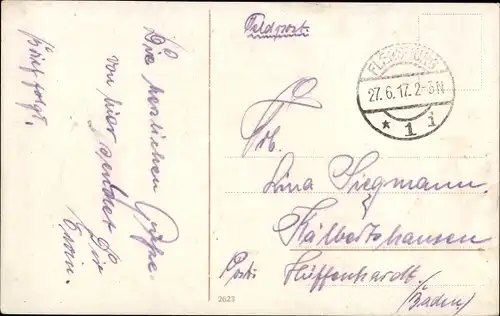 Feldpost.
FLENSBURG
27.6.17. 2-3N
* 1 i
Frl.
Lina Siegmann.
Kälbertshausen
Post: Hüffenhardt.
(Baden)
Die herzlichen Grüße
von hier sendet Dir
Erwin.
Brief folgt.
2623